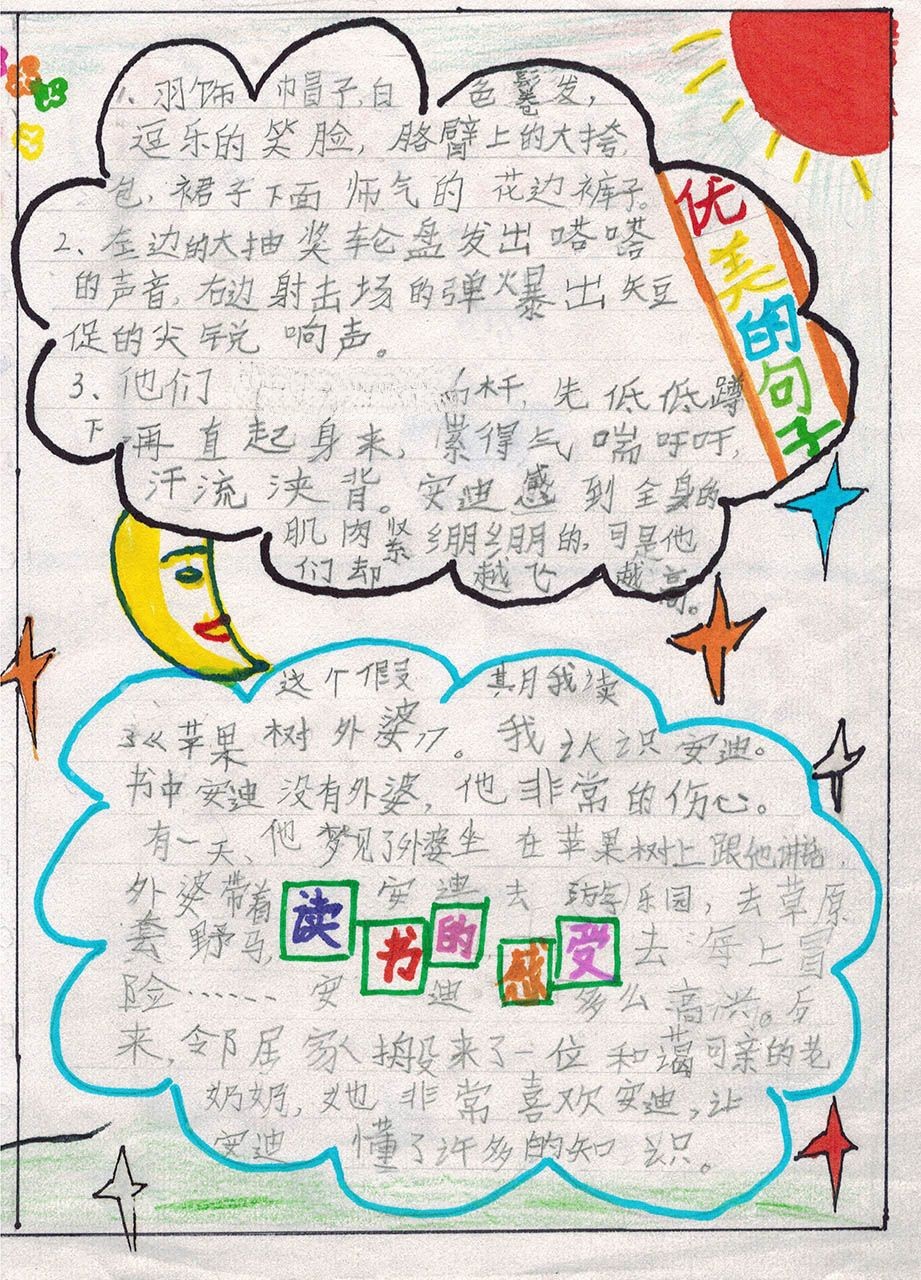 1、羽饰 巾帽子,白 色鬈发,
逗乐的笑脸,胳臂上的大挎
包,裙子下面 师气的 花边裤子。
2、左边的大抽奖轮盘发出嗒嗒
的声音,右边射击场的弹爆出矢豆
促的尖锐响声。
3、他们 向杆,先低低蹲
下再直起身来,累得气喘吁吁,
汗流浃背。安迪感到全身的
肌肉紧绷绷的,可是他
们却 越飞 越 高。
优美的句子
这个假 期我读
了《苹果树外婆》。我认识安迪。
书中安迪没有外婆,他非常的伤心。
有一天、他梦见了外婆坐在苹果树上跟他讲话,
外婆带着 安迪去 游乐园,去草原
套野马, 去海上冒
险…… 安 迪 多么高兴。后
来,邻居家搬来了一位和蔼可亲的老
奶奶,她非常喜欢安迪,让
安迪 懂了许多的知识。
读书的感受